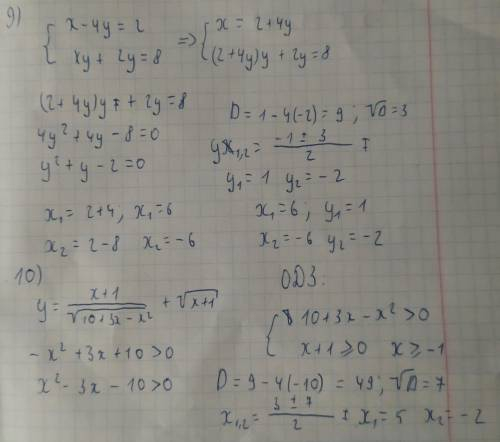 9)
{ x - 4y = 2 => { x = 2 + 4y
xy + 2y = 8 (2 + 4y)y + 2y = 8
(2 + 4y)y + 2y = 8
4y² + 4y - 8 = 0
y² + y - 2 = 0
D = 1 - 4(-2) = 9 ; √D = 3
y₁,₂ = (-1 ± 3)/2
y₁ = 1 y₂ = -2
x₁ = 2 + 4 ; x₁ = 6
x₂ = 2 - 8 x₂ = -6
x₁ = 6 ; y₁ = 1
x₂ = -6 y₂ = -2
10)
y = (x + 1)/√(10 + 3x - x²) + √(x + 1)
- x² + 3x + 10 > 0
x² - 3x - 10 > 0
ОДЗ:
{ 10 + 3x - x² > 0
x + 1 ⩾ 0 x ⩾ -1
D = 9 - 4(-10) = 49 ; √D = 7
x₁,₂ = (3 ± 7)/2 x₁ = 5 x₂ = -2